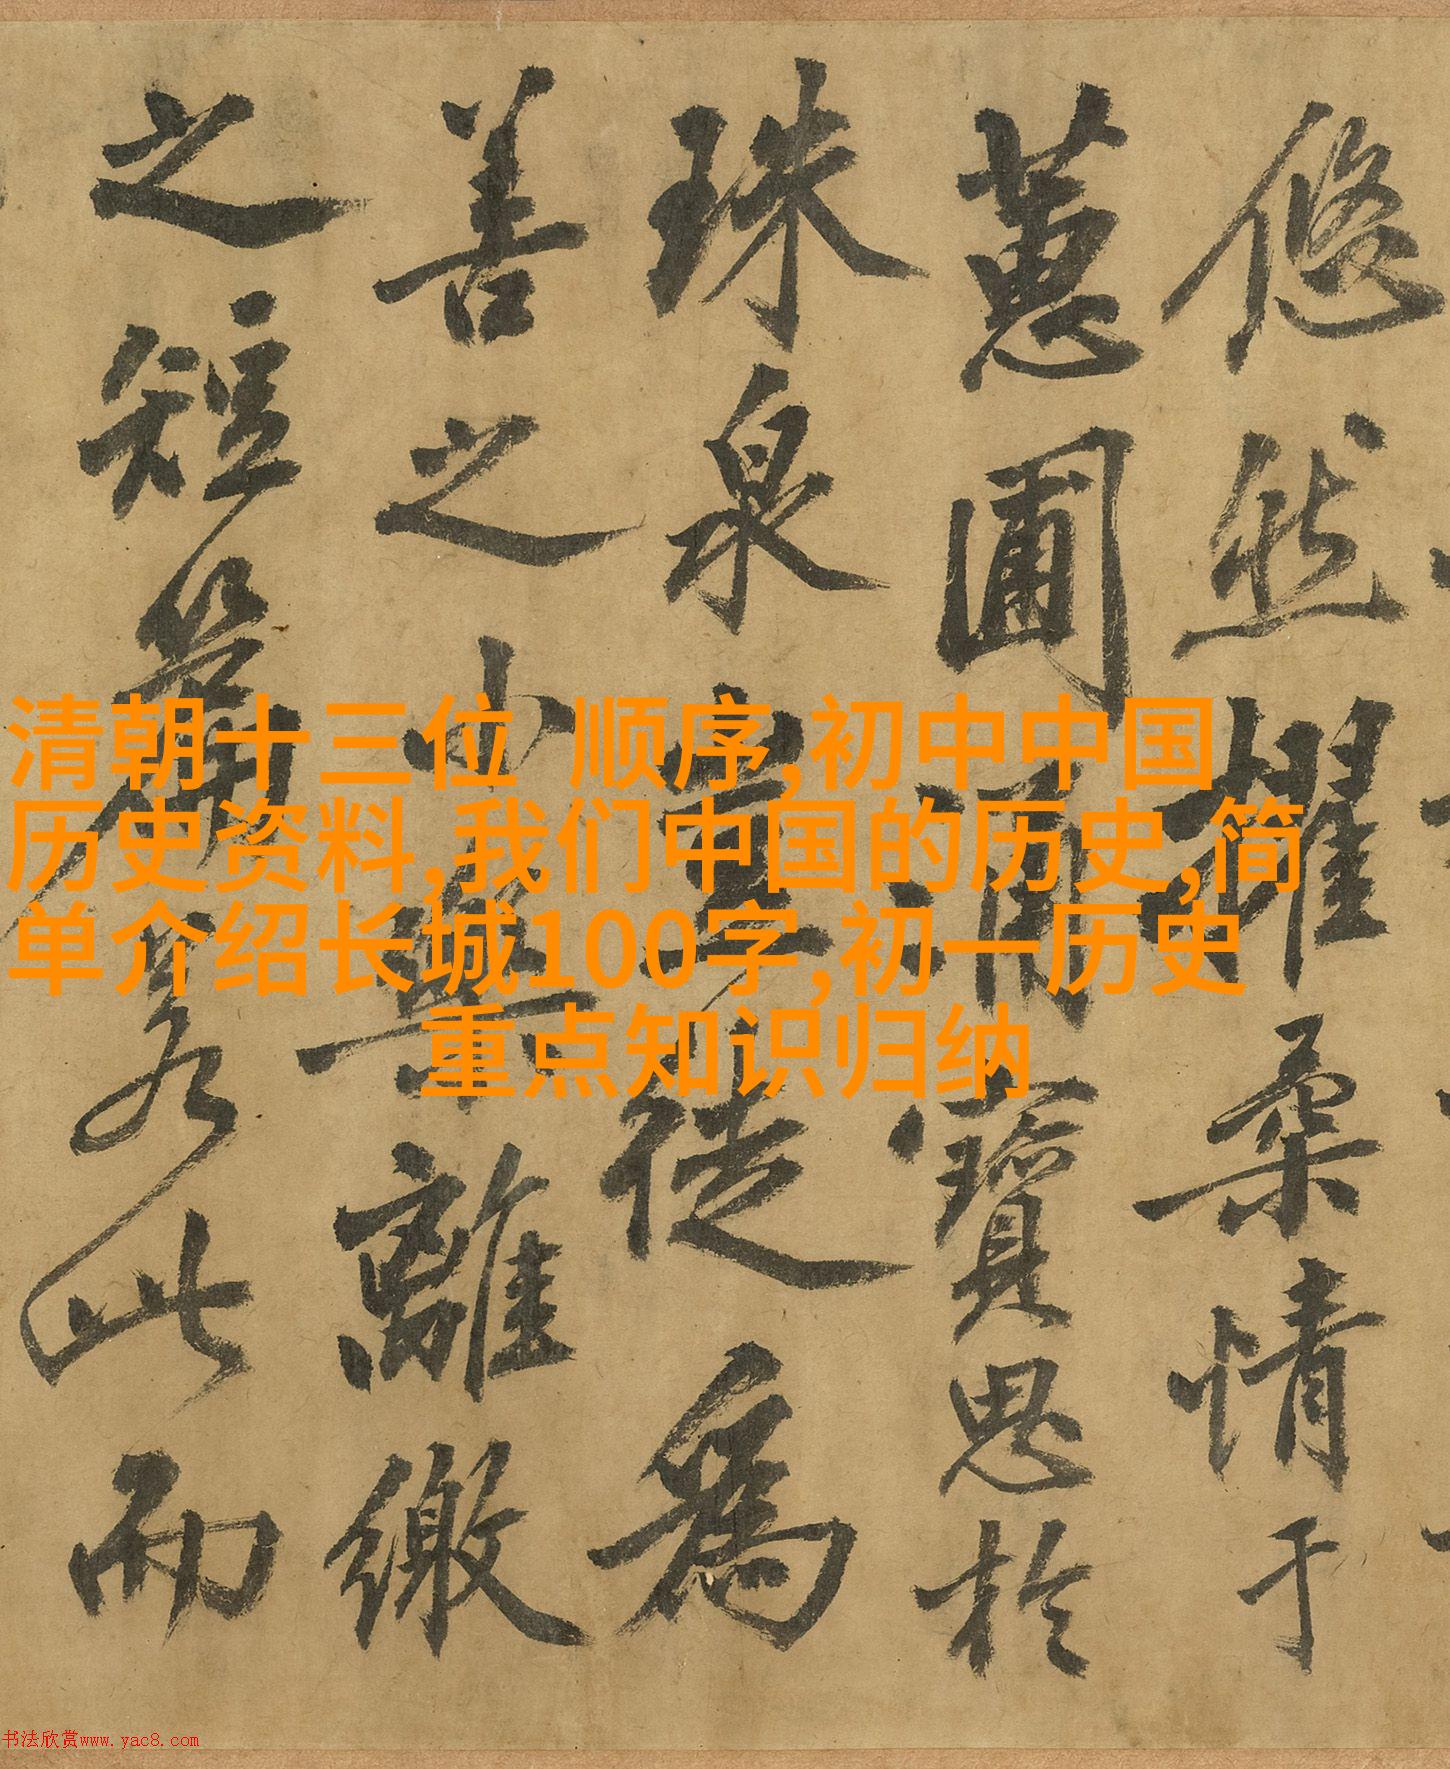 悠然擢桑情于
蕙圃涌寶思於
珠泉童徒為
善之小無離繳
之短篇若此而
清朝十三位 顺序,初中中国
历史资料,我们中国的历史,简
单介绍长城100字,初一历史
重点知识归纳
书法欣赏www.yac8.com